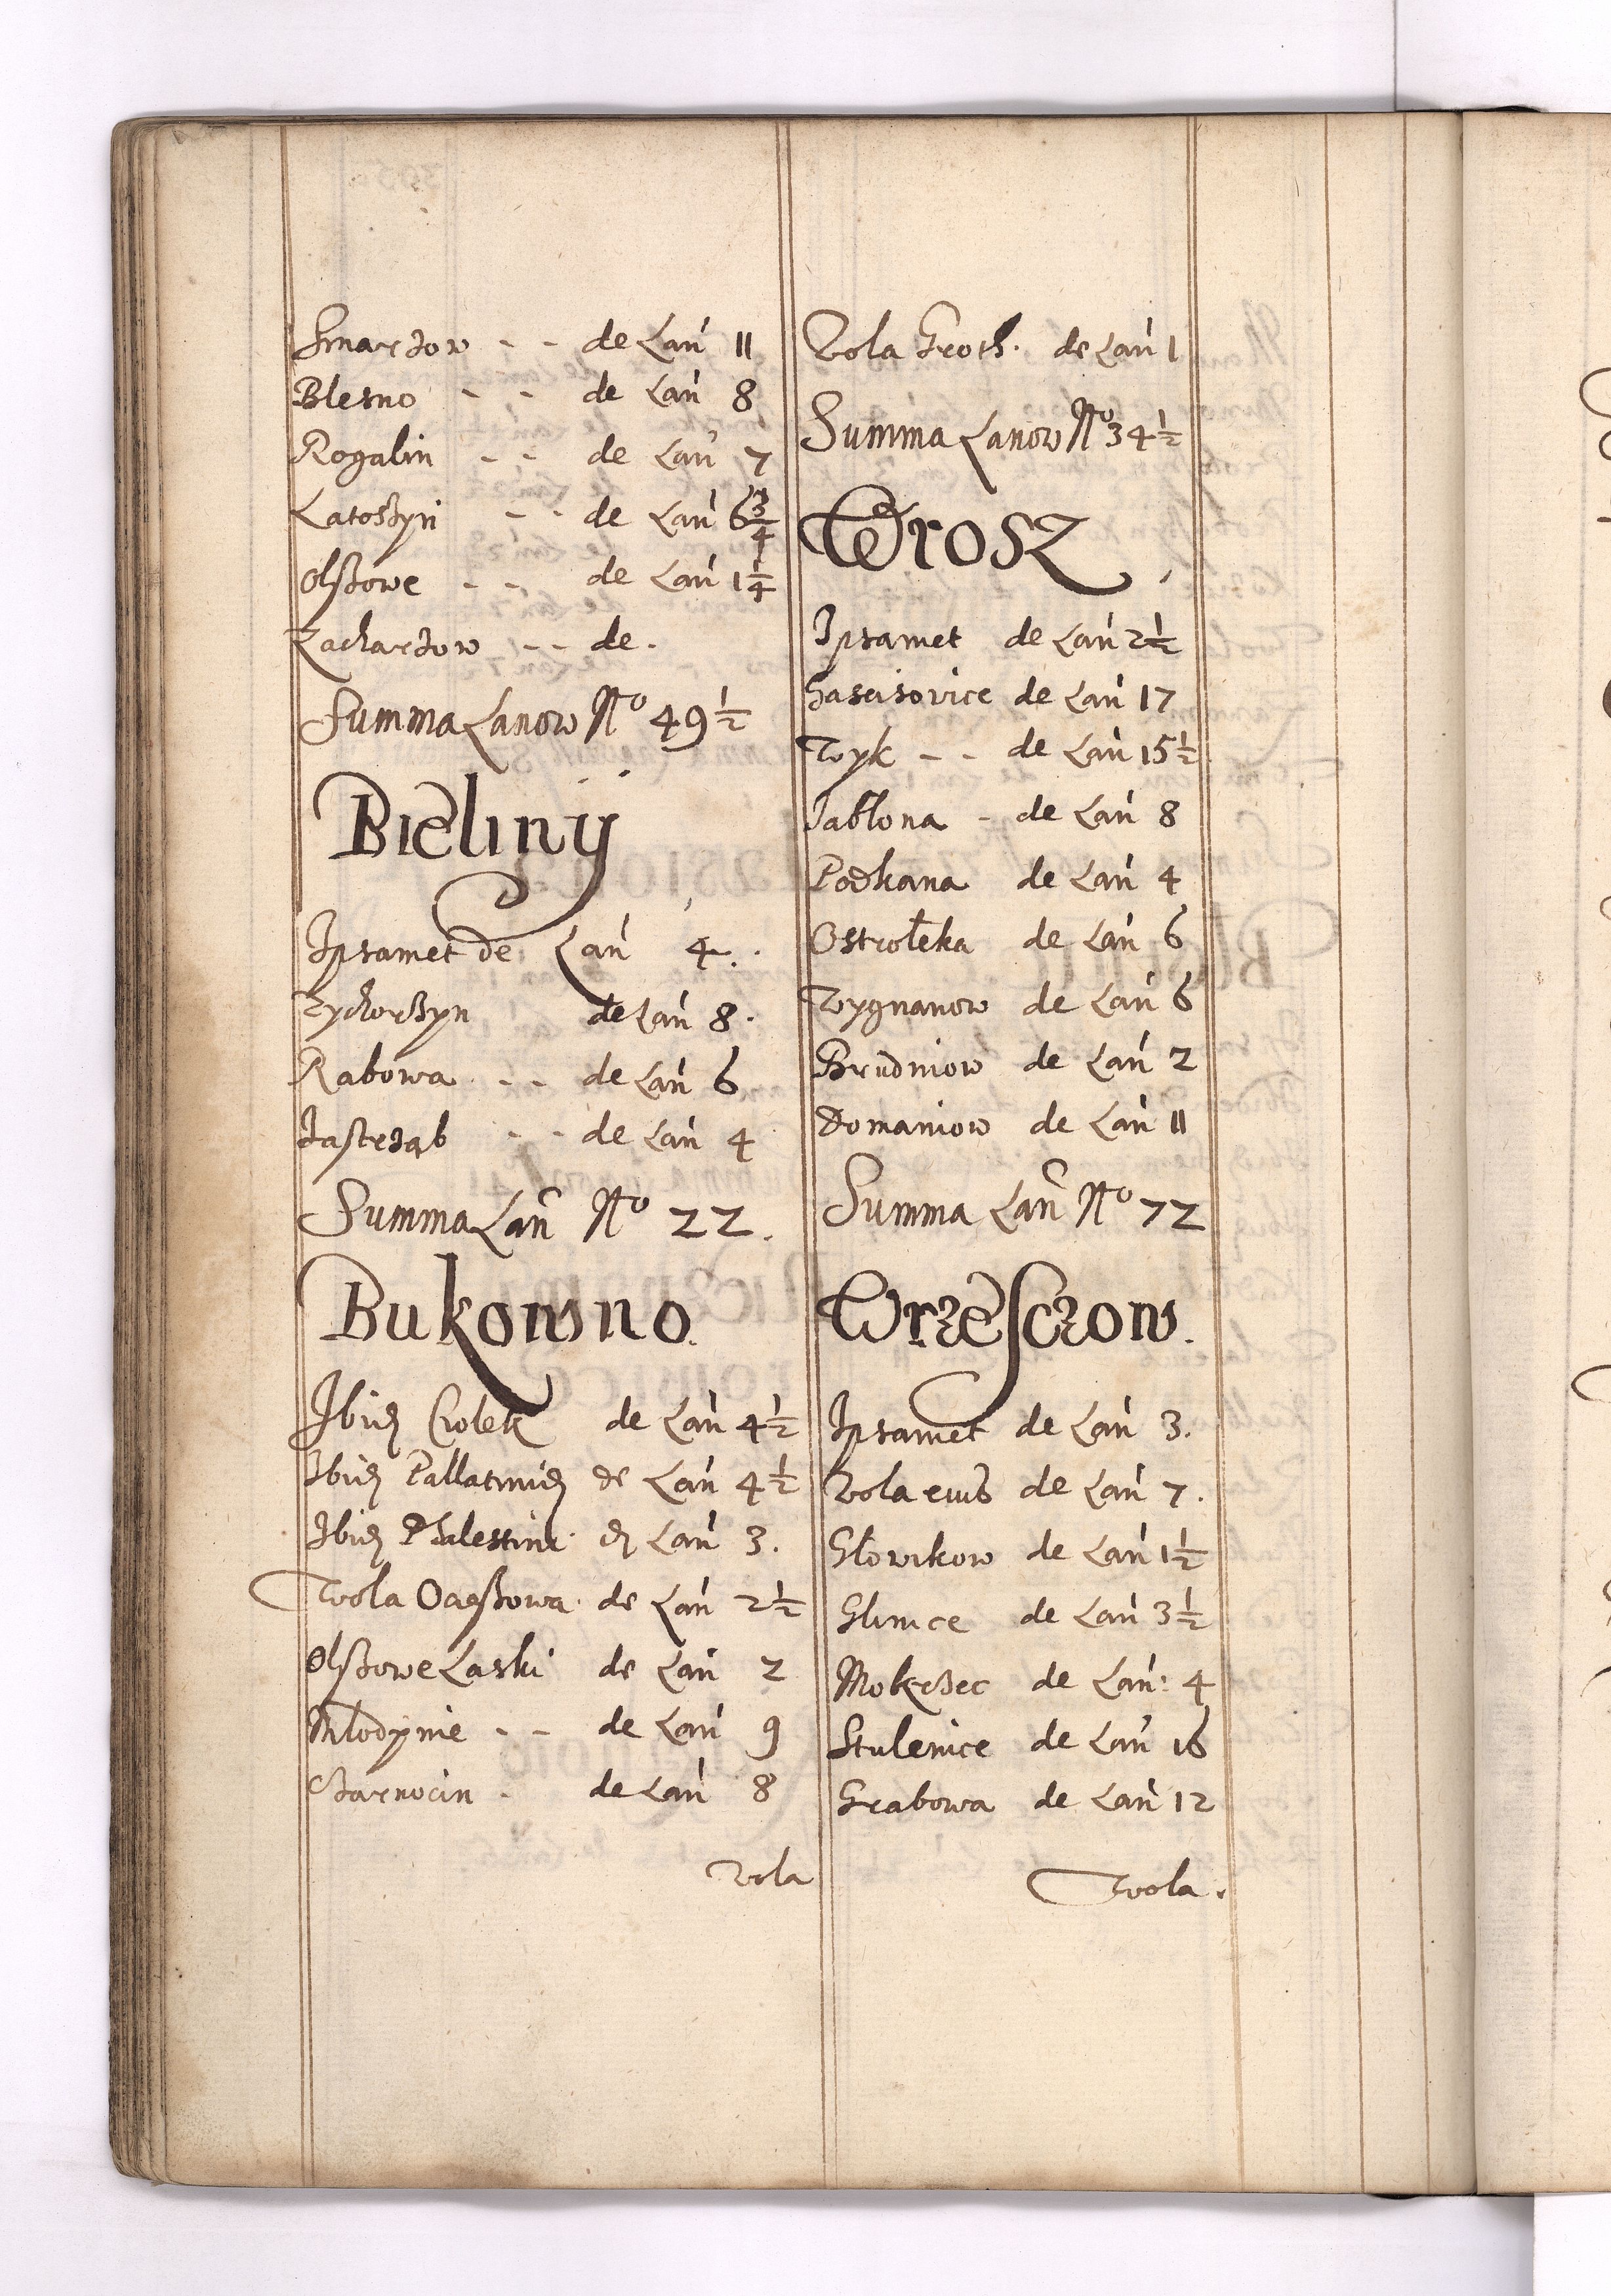 Smarzow - - de Lan 11
Blesno - - de Lan 8
Rogalin - - de Lan 7
Latoszyn - - de Lan 6 3/4
Olszowe - - de Lan 1 1/4
Zacharzow - - de.
Summa Lanow No 49 1/2
Bieliny
Ipsamet de Lan 4.
Zychorzyn de Lan 8.
Rabowa - - de Lan 6
Jastrząb - - de Lan 4
Summa Lan No 22.
Bukowno.
Ibid Ciolek de Lan 4 1/2
Ibid Pallatinid de Lan 4 1/2
Ibid Phalestini d Lan 3.
Wola Gągszowa de Lan 2 1/2
Olszowe Laski de Lan 2
Młodynie - - de Lan 9
Czarnocin - de Lan 8
Wola
Wola Grosz. de Lan 1
Summa Lanow No 34 1/2
Wrosz
Ipsamet de Lan 2 1/2
Gasczovice de Lan 17
Wyk - - de Lan 15 1/2
Jabłona - de Lan 8
Podkana de Lan 4
Ostrołeka de Lan 6
Wygnanow de Lan 6
Brudniow de Lan 2
Domaniow de Lan 11
Summa Lan No 72
Wrzesczow.
Ipsamet de Lan 3.
Wola eius de Lan 7.
Głowikow de Lan 1 1/2
Glinice de Lan 3 1/2
Mokrzec de Lan: 4
Skulenice de Lan 16
Grabowa de Lan 12
Wola.